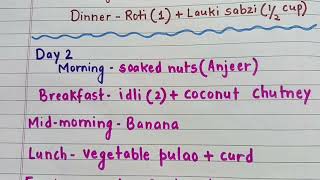 Dinner - Roti (1) + Lauki sabzi (1/2 cup)
Day 2
Morning - soaked nuts (Anjeer)
Breakfast - idli (2) + coconut chutney
Mid-morning - Banana
Lunch - vegetable pulao + curd